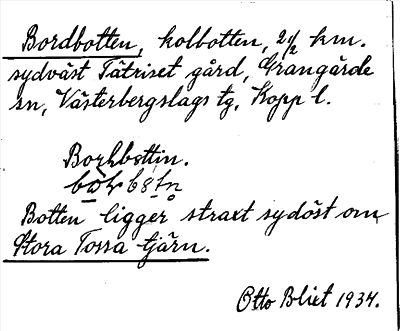 Bordbotten, kolbotten, 2 1/2 km.
sydväst Tätriset gård, Grangärde
sn, Västerbergslags tg, Kopp l.
Borhbottin.
Botten ligger straxt sydöst om
Stora Tossa tjärn.
Otto Blixt 1934.